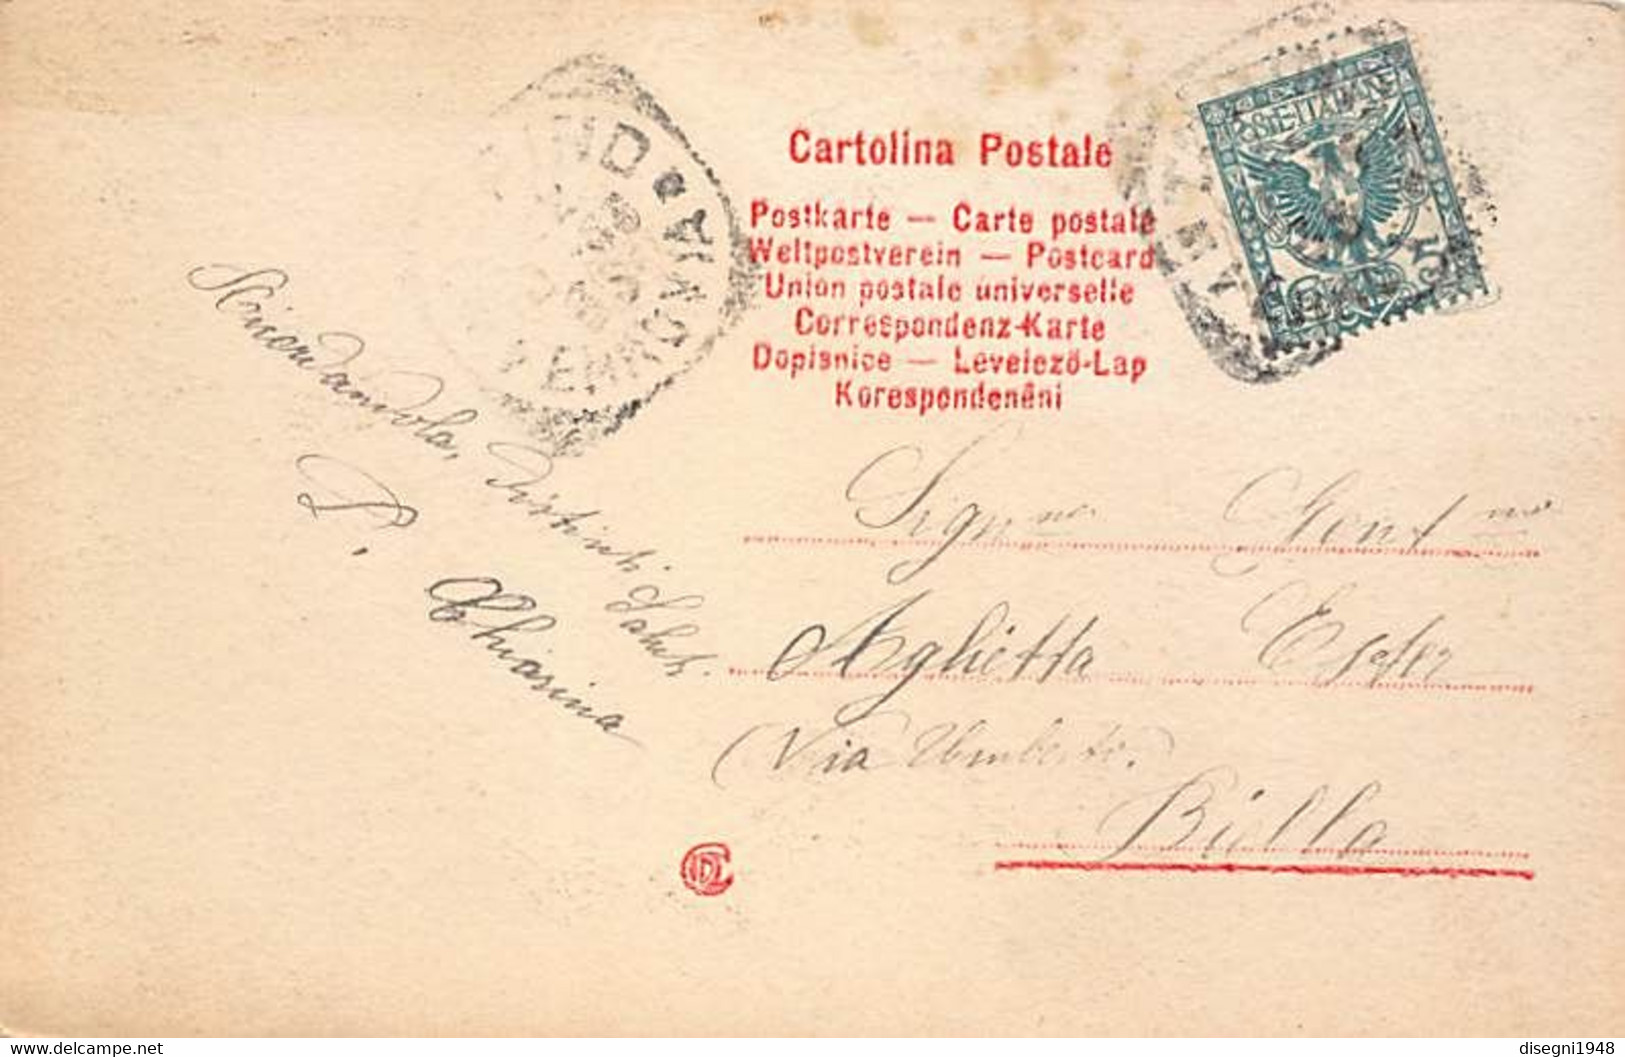 Cartolina Postale
Postkarte — Carte postale
Weltpostverein — Postcard
Union postale universelle
Correspondenz-Karte
Dopisnice — Levelező-Lap
Korespondenèni
POSTE·ITALIANE
5
FERROVIA
distinti Saluti.
Chiasina
Sign
Aglietta Ester
Via Umberto.
Biella
delcampe.net
disegni1948